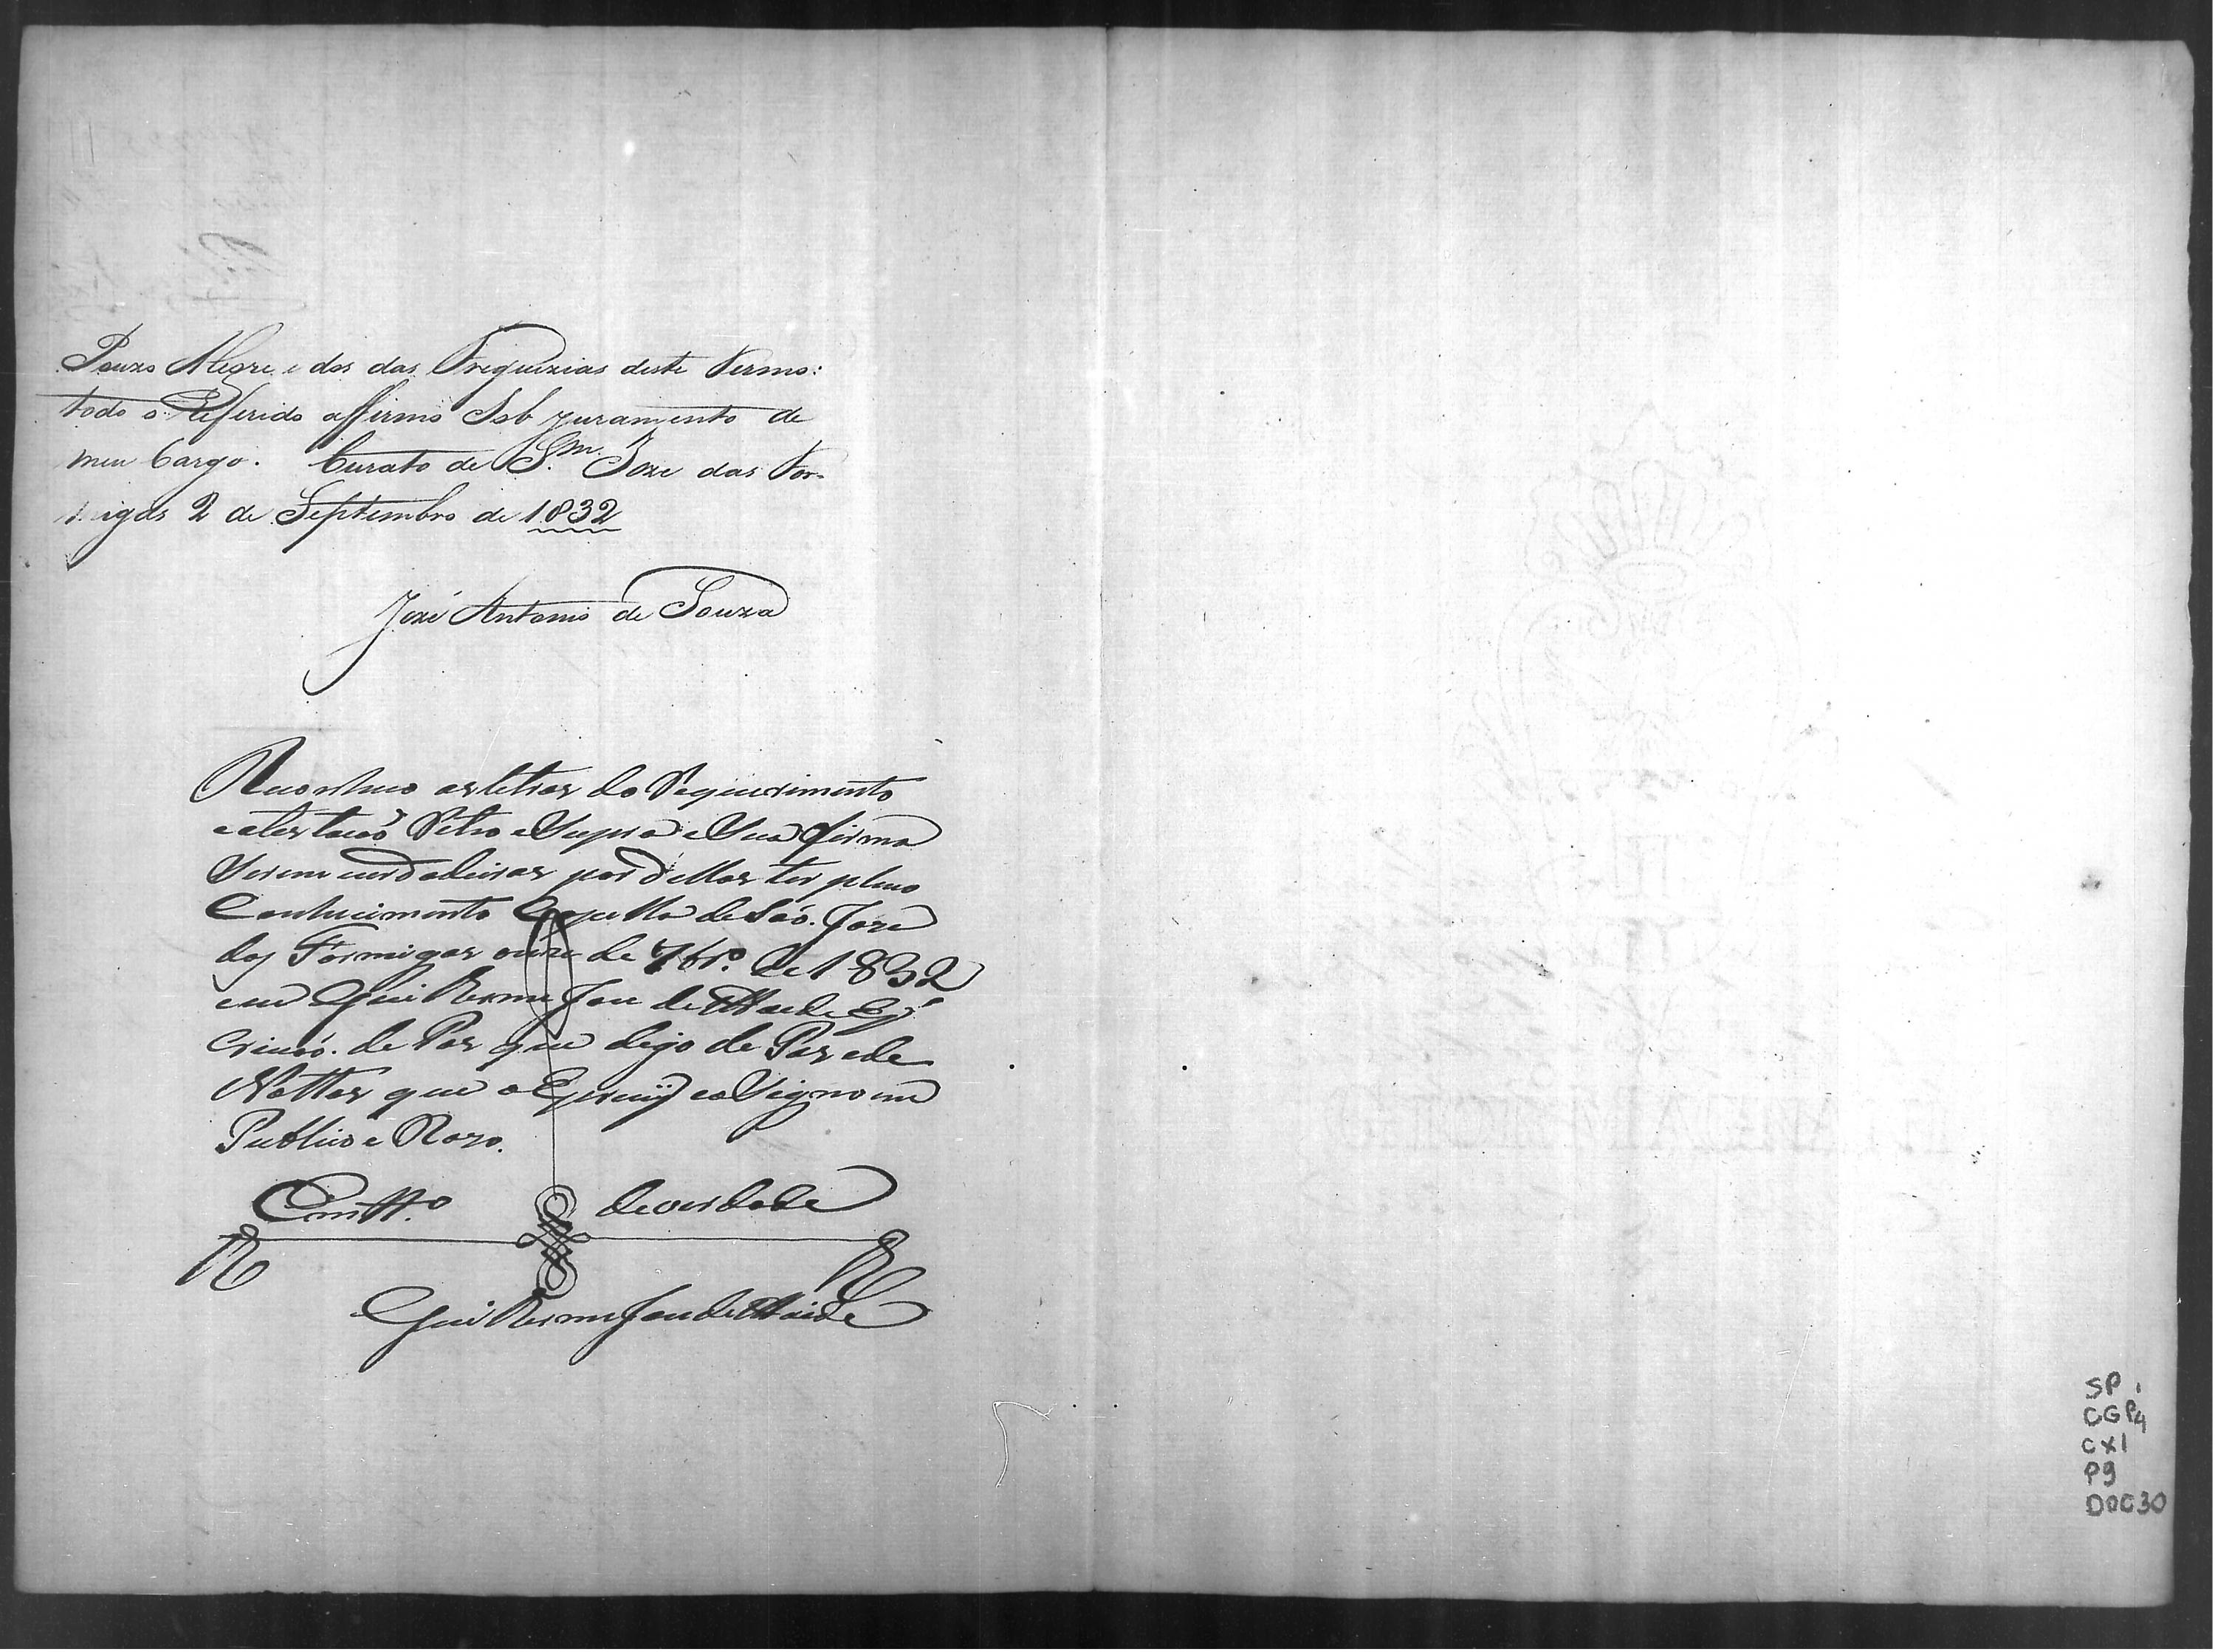 Pouzo Alegre e dos das Freguezias deste Termo:
todo o Referido affirmo Sob juramento de
meu Cargo. Curato de S.m Joze das For-
migas 2 de Septembro de 1832
José Antonio de Souza
Reconheco as letras do Requerimento
e atestacaõ Retro e Supra e Sua firma
Serem verdadeiras por dellas ter pleno
Conhecimento Capella de Saõ. Joze
das Formigas onze de 7br.o de 1832
eu Guilherme Joze de Es
Crivaõ. de Paz que digo de Paz e de
Nottas que o Escrevy e o Signo em
Publico e Razo.
Em tt.o de verdade
Guilherme Joze de
SP.
CGP4
CX1
P9
DOC30